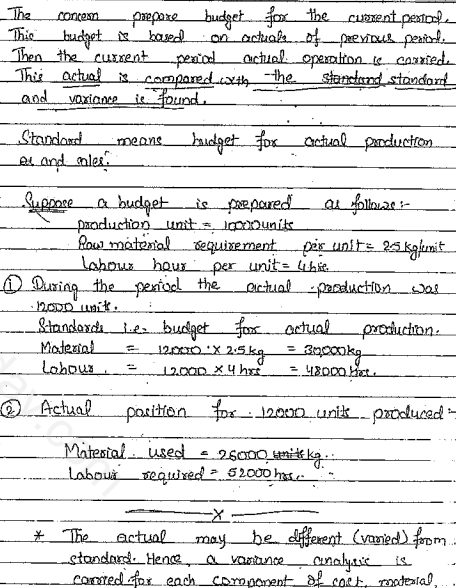 The concern prepare budget for the current period.
This budget is based on actuals of previous period.
Then the current period actual operation is carried.
This actual is compared with the standard standard
and variance is found.
Standard means budget for actual production
or and sales.
Suppose a budget is prepared as follows :-
production unit = 10000 units
Raw material requirement per unit = 2.5 kg/unit
Labour hour per unit = 4 hrs.
① During the period the actual production was
12000 units.
Standards i.e. budget for actual production.
Material = 12000 × 2.5 kg = 30,000 kg
Labour = 12000 × 4 hrs = 48000 hrs.
② Actual position for 12000 units produced :-
Material used = 26000 units kg.
Labour required = 52000 hrs.
x
* The actual may be different (varied) from
standard. Hence, a variance analysis is
carried for each component of cost, material,